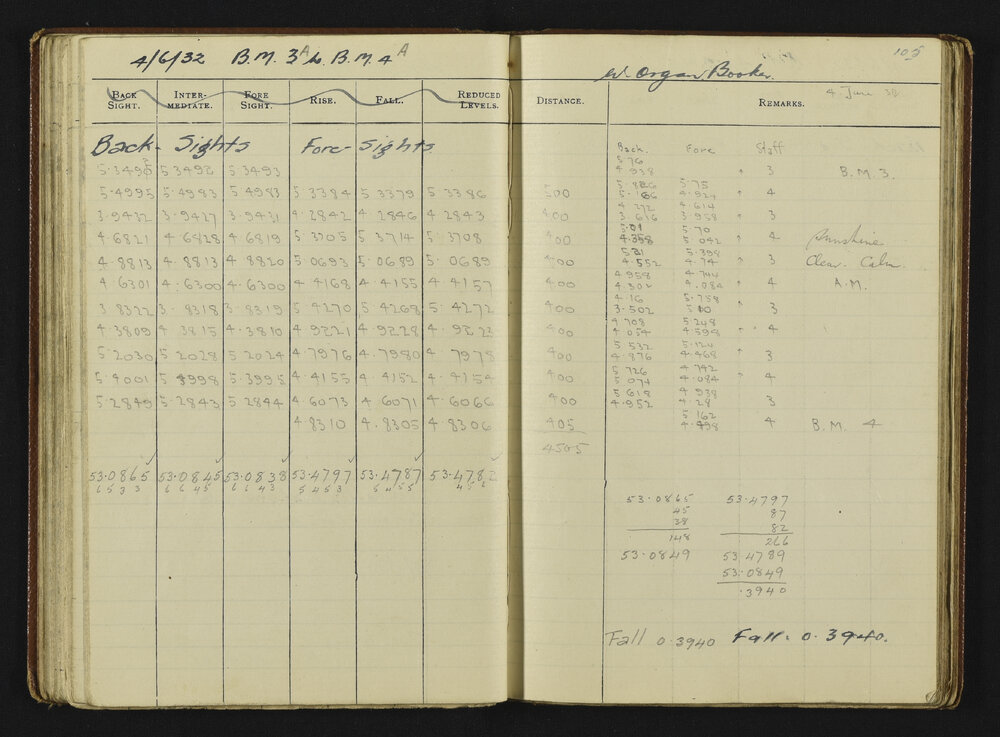 4/6/32 B.M. 3A to B.M. 4A
BACK SIGHT. INTER-MEDIATE. FORE SIGHT. RISE. FALL. REDUCED LEVELS.
Back- Sights Fore- Sights
5.3495 5 3492 5 3493
5.4995 5.4983 5 4983 5 3384 5 3379 5 3386
3.9432 3.9427 3.9431 4.2842 4.2846 4.2843
4.6821 4.6828 4.6819 5.3705 5 3714 5 3708
4.8813 4.8813 4.8820 5.0693 5.0689 5.0689
4 6301 4.6300 4.6300 4.4168 4.4155 4.4157
3 8322 3.8318 3.8319 5.4270 5.4268 5.4272
4.3809 4 3815 4.3810 4.9221 4.9228 4.9223
5.2030 5 2028 5 2024 4.7976 4.7980 4 7978
5.4001 5 3998 5.3995 4.4155 4.4152 4.4154
5.2849 5.2843 5 2844 4 6073 4 6071 4.6066
4 8310 4.8305 4.8306
53.0865 53.0845 53.0838 53.4797 53.4787 53.4782
105
W Organ Booker.
4 June 32
DISTANCE. REMARKS.
Back. Fore Staff
5 76
4 938 " 3 B.M. 3.
5.75
500 4.924 " 4
4.272 4.614
400 3.616 3.958 " 3
5.01 5.70
400 4.358 5.042 " 4 Sunshine
5.398
400 4.552 4.74 " 3 Clear. Calm.
4.958 4.744
400 4.302 4.084 " 4 A.M.
4.16 5.758
400 3.502 5.10 " 3
4 708 5.248
400 4.054 4.598 " 4
5 532 5.120
400 4.876 4.468 " 3
5 726 4 742
400 5 074 4.084 " 4
5 618 4 938
400 4.952 4.28 3
5.162
405 4.498 4 B.M. 4
4505
53.0865 53.4797
45 87
38 82
148 266
53.0849 53.4789
53.0849
.3940
Fall 0.3940 Fall. 0.3940.